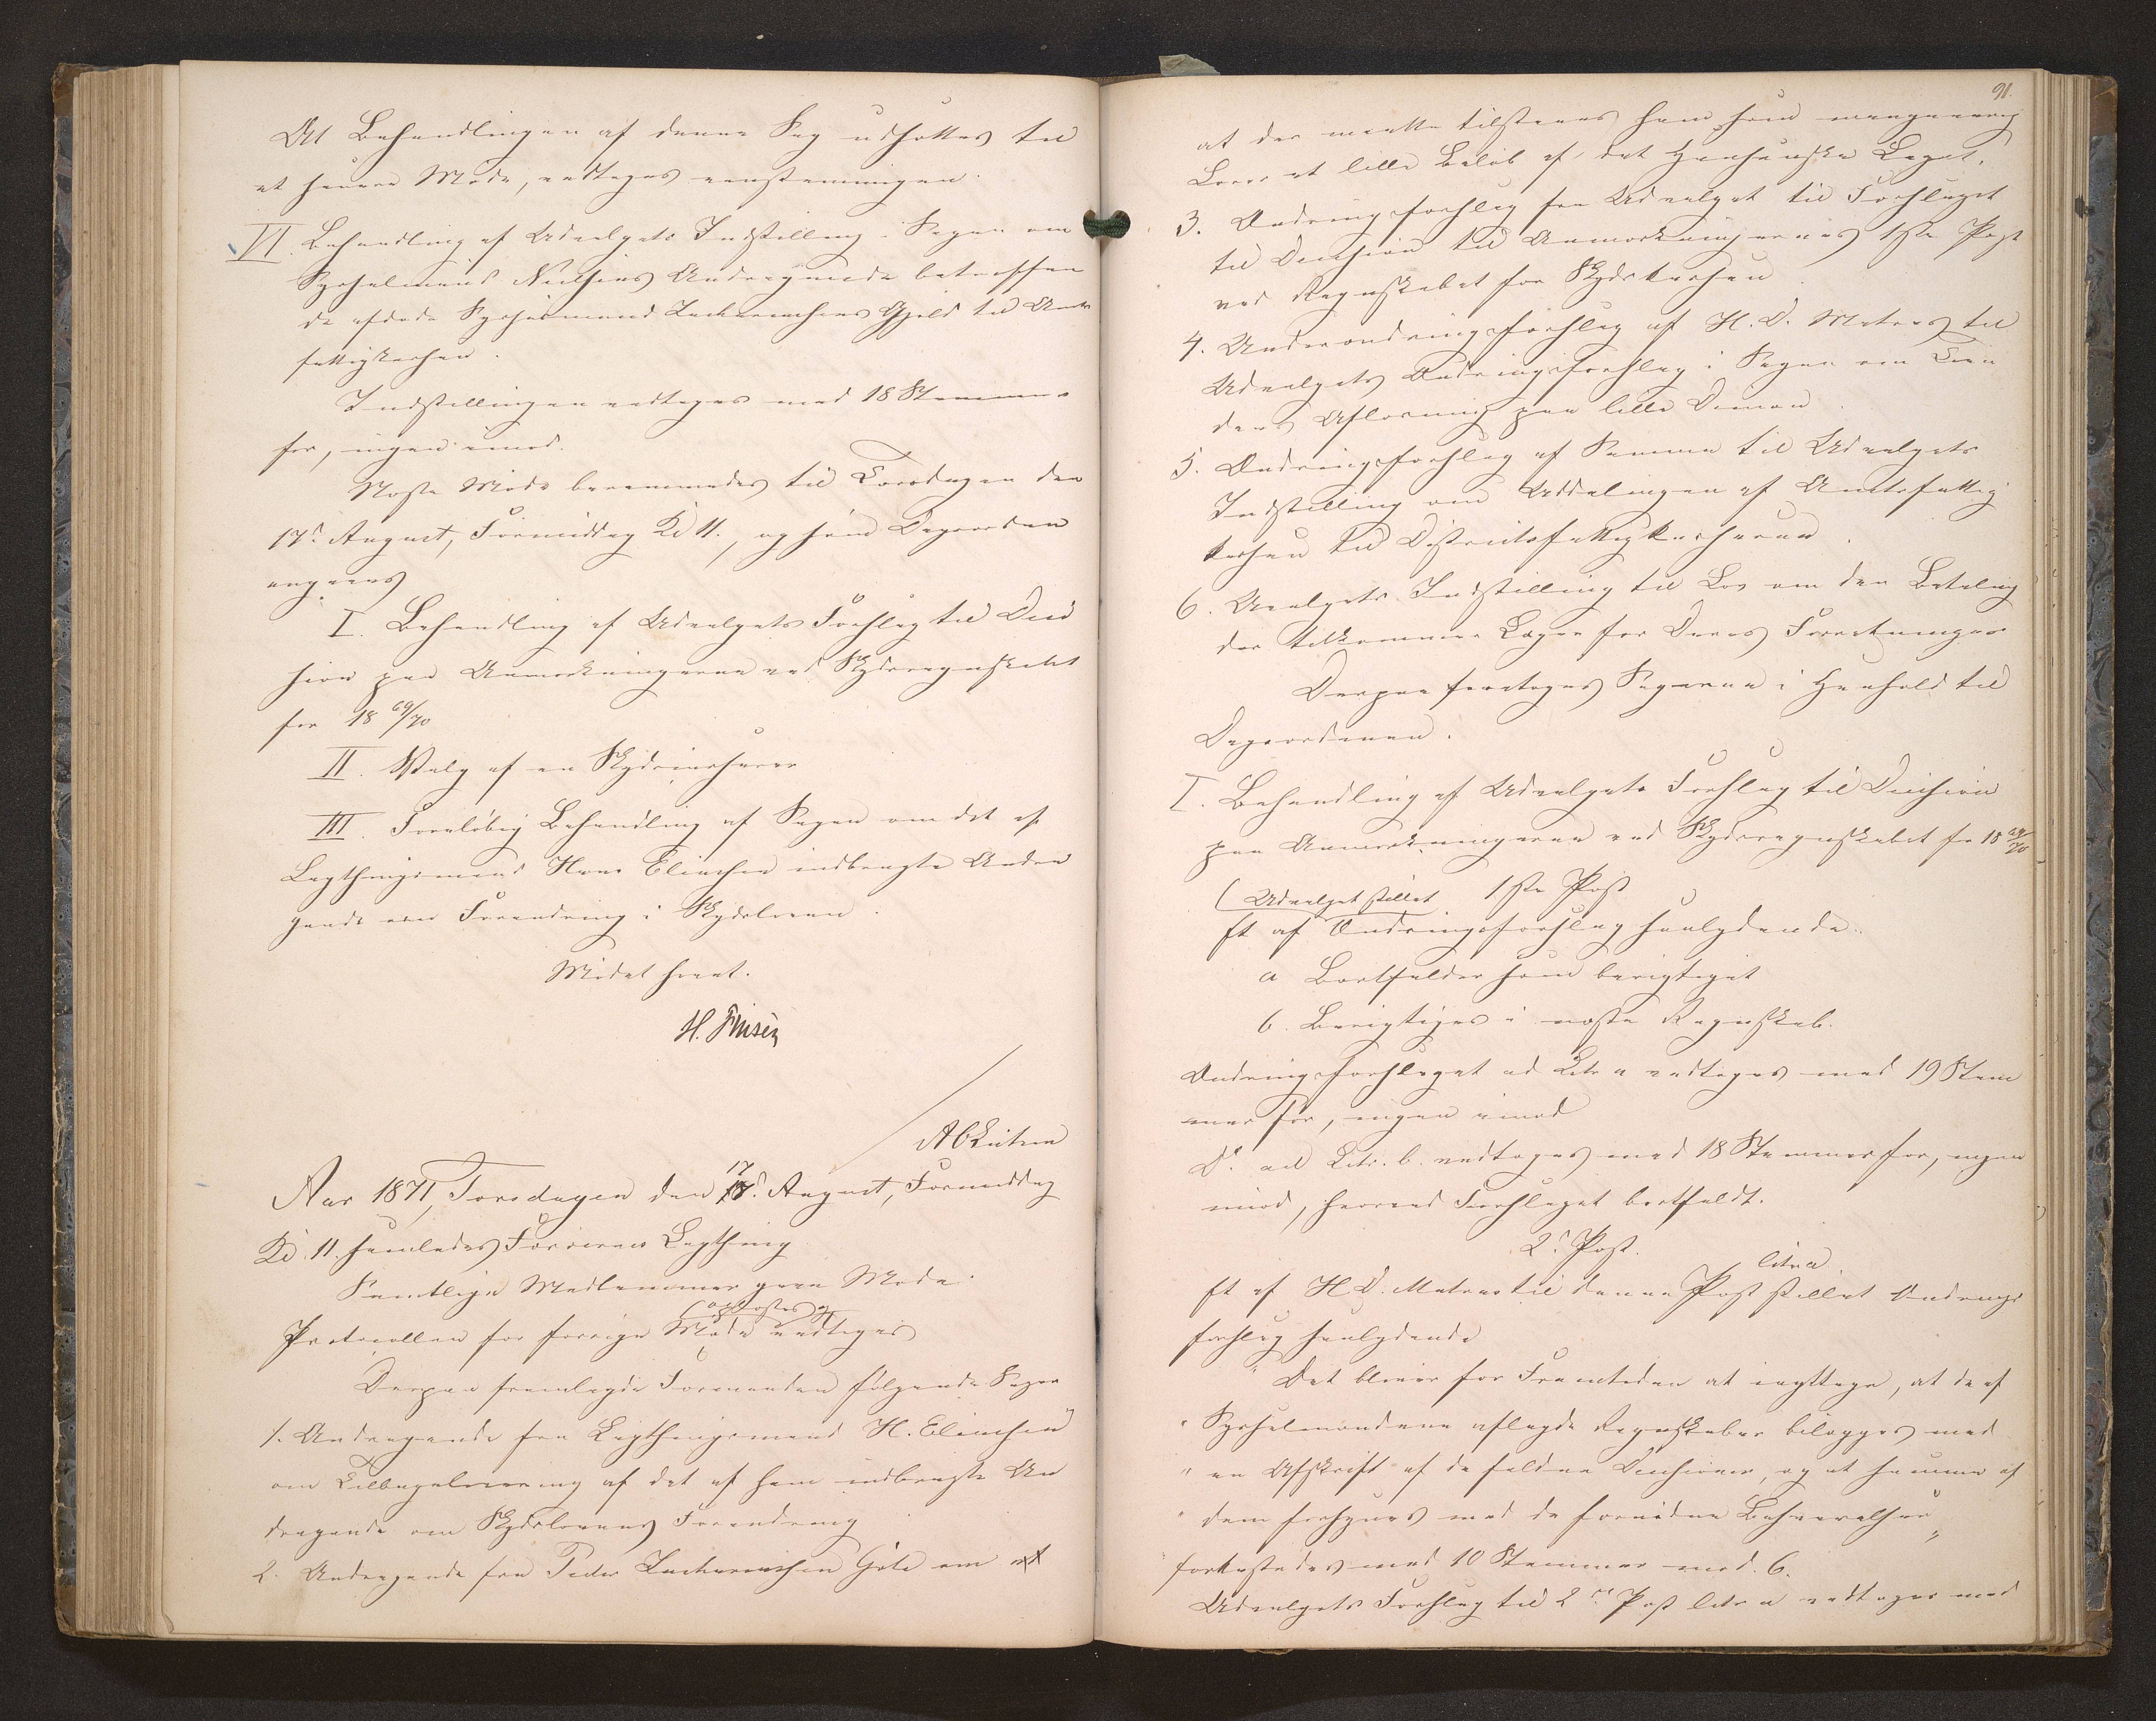 At Behandlingen af denne Sag udsættes til
et senere Møde, vedtoges eenstemmigen.
VI. Behandling af Udvalgets Indstilling i Sagen om
Sysselmand Nielsens Andragende betræffen
de afdøde Sysselmand Zachariasens Gjæld til Amts
fattigkassen.
Indstillingen vedtoges med 18 Stemmer
for, ingen imod.
Næste Møde berammedes til Torsdagen den
17d August, Formiddag Kl 11., og som Dagsorden
angaves
I. Behandling af Udvalgets Forslag til Deci
sion paa Anmærkningerne ved Skydsregnskabet
for 18 69/70
II. Valg af en Skydsrevisor
III. Foreløbig Behandling af Sagen om det af
Lagthingsmand Hans Eliasen indbragte Andra
gende om Forandring i Skydsloven.
Mødet hævet.
H. Finsen
Aar 1871, Torsdagen den 17d. August, Formiddag
Kl. 11. samledes Færøernes Lagthing
Samtlige Medlemmer gave Møde.
oplæstes og
Protocollen for forrige Møde vedtoges
Derpaa fremlagde Formanden følgende Sager
1. Andragende fra Lagthingsmand H. Eliasen
om Tilbagelevering af det af ham indbragte An
dragende om Skydslovens Forandring
2. Andragende fra Peder Zachariasen Gøte om at
91.
at der maatte tilstaaes ham som
Laan et lille Beløb af det Legat.
3. Ændringsforslag fra Udvalget til Forslaget
til Decision til Anmærkningernes 1ste Post
ved Regnskabet for Skydskassen
4. Underændringsforslag af H. D. Matras til
Udvalgets Ændringsforslag i Sagen om Tien
dens Afløsning paa lille Dimon.
5. Ændringsforslag af Samme til Udvalgets
Indstilling om Uddelingen af Amtsfattig
kassen til Districtsfattigkasserne.
6. Udvalgets Indstilling til Lov om den Betaling
der tilkommer Læger for Deres Forretninger
Derpaa foretoges Sagerne i Henhold til
Dagsordenen.
I. Behandling af Udvalgets Forslag til Decision
paa Anmærkningerne ved Skydsregnskabet for 18 69/70
Udvalget stillet 1ste Post
Et af Ændringsforslag saalydende.
a Bortfalder som berigtiget
b. Berigtiges i næste Regnskab.
Ændringsforslaget ad Litr a vedtoges med 19 Stem
mer for, ingen imod
Do. ad Litr. b. vedtoges med 18 Stemmer for, ingen
imod, hvorved Forslaget bortfaldt.
2d Post.
litr a
Et af H D. Matras til denne Post stillet Ændrings
forslag saalydende
"Det bliver for Fremtiden at iagttage, at de af
" Sysselmændene aflagde Regnskaber bilægges med
" en Afskrift af de faldne Decisioner, og at samme af
" dem forsynes med de fornødne Besvarelser"
forkastedes med 10 Stemmer mod 6.
Udvalgets Forslag til 2den Post litr a vedtoges med